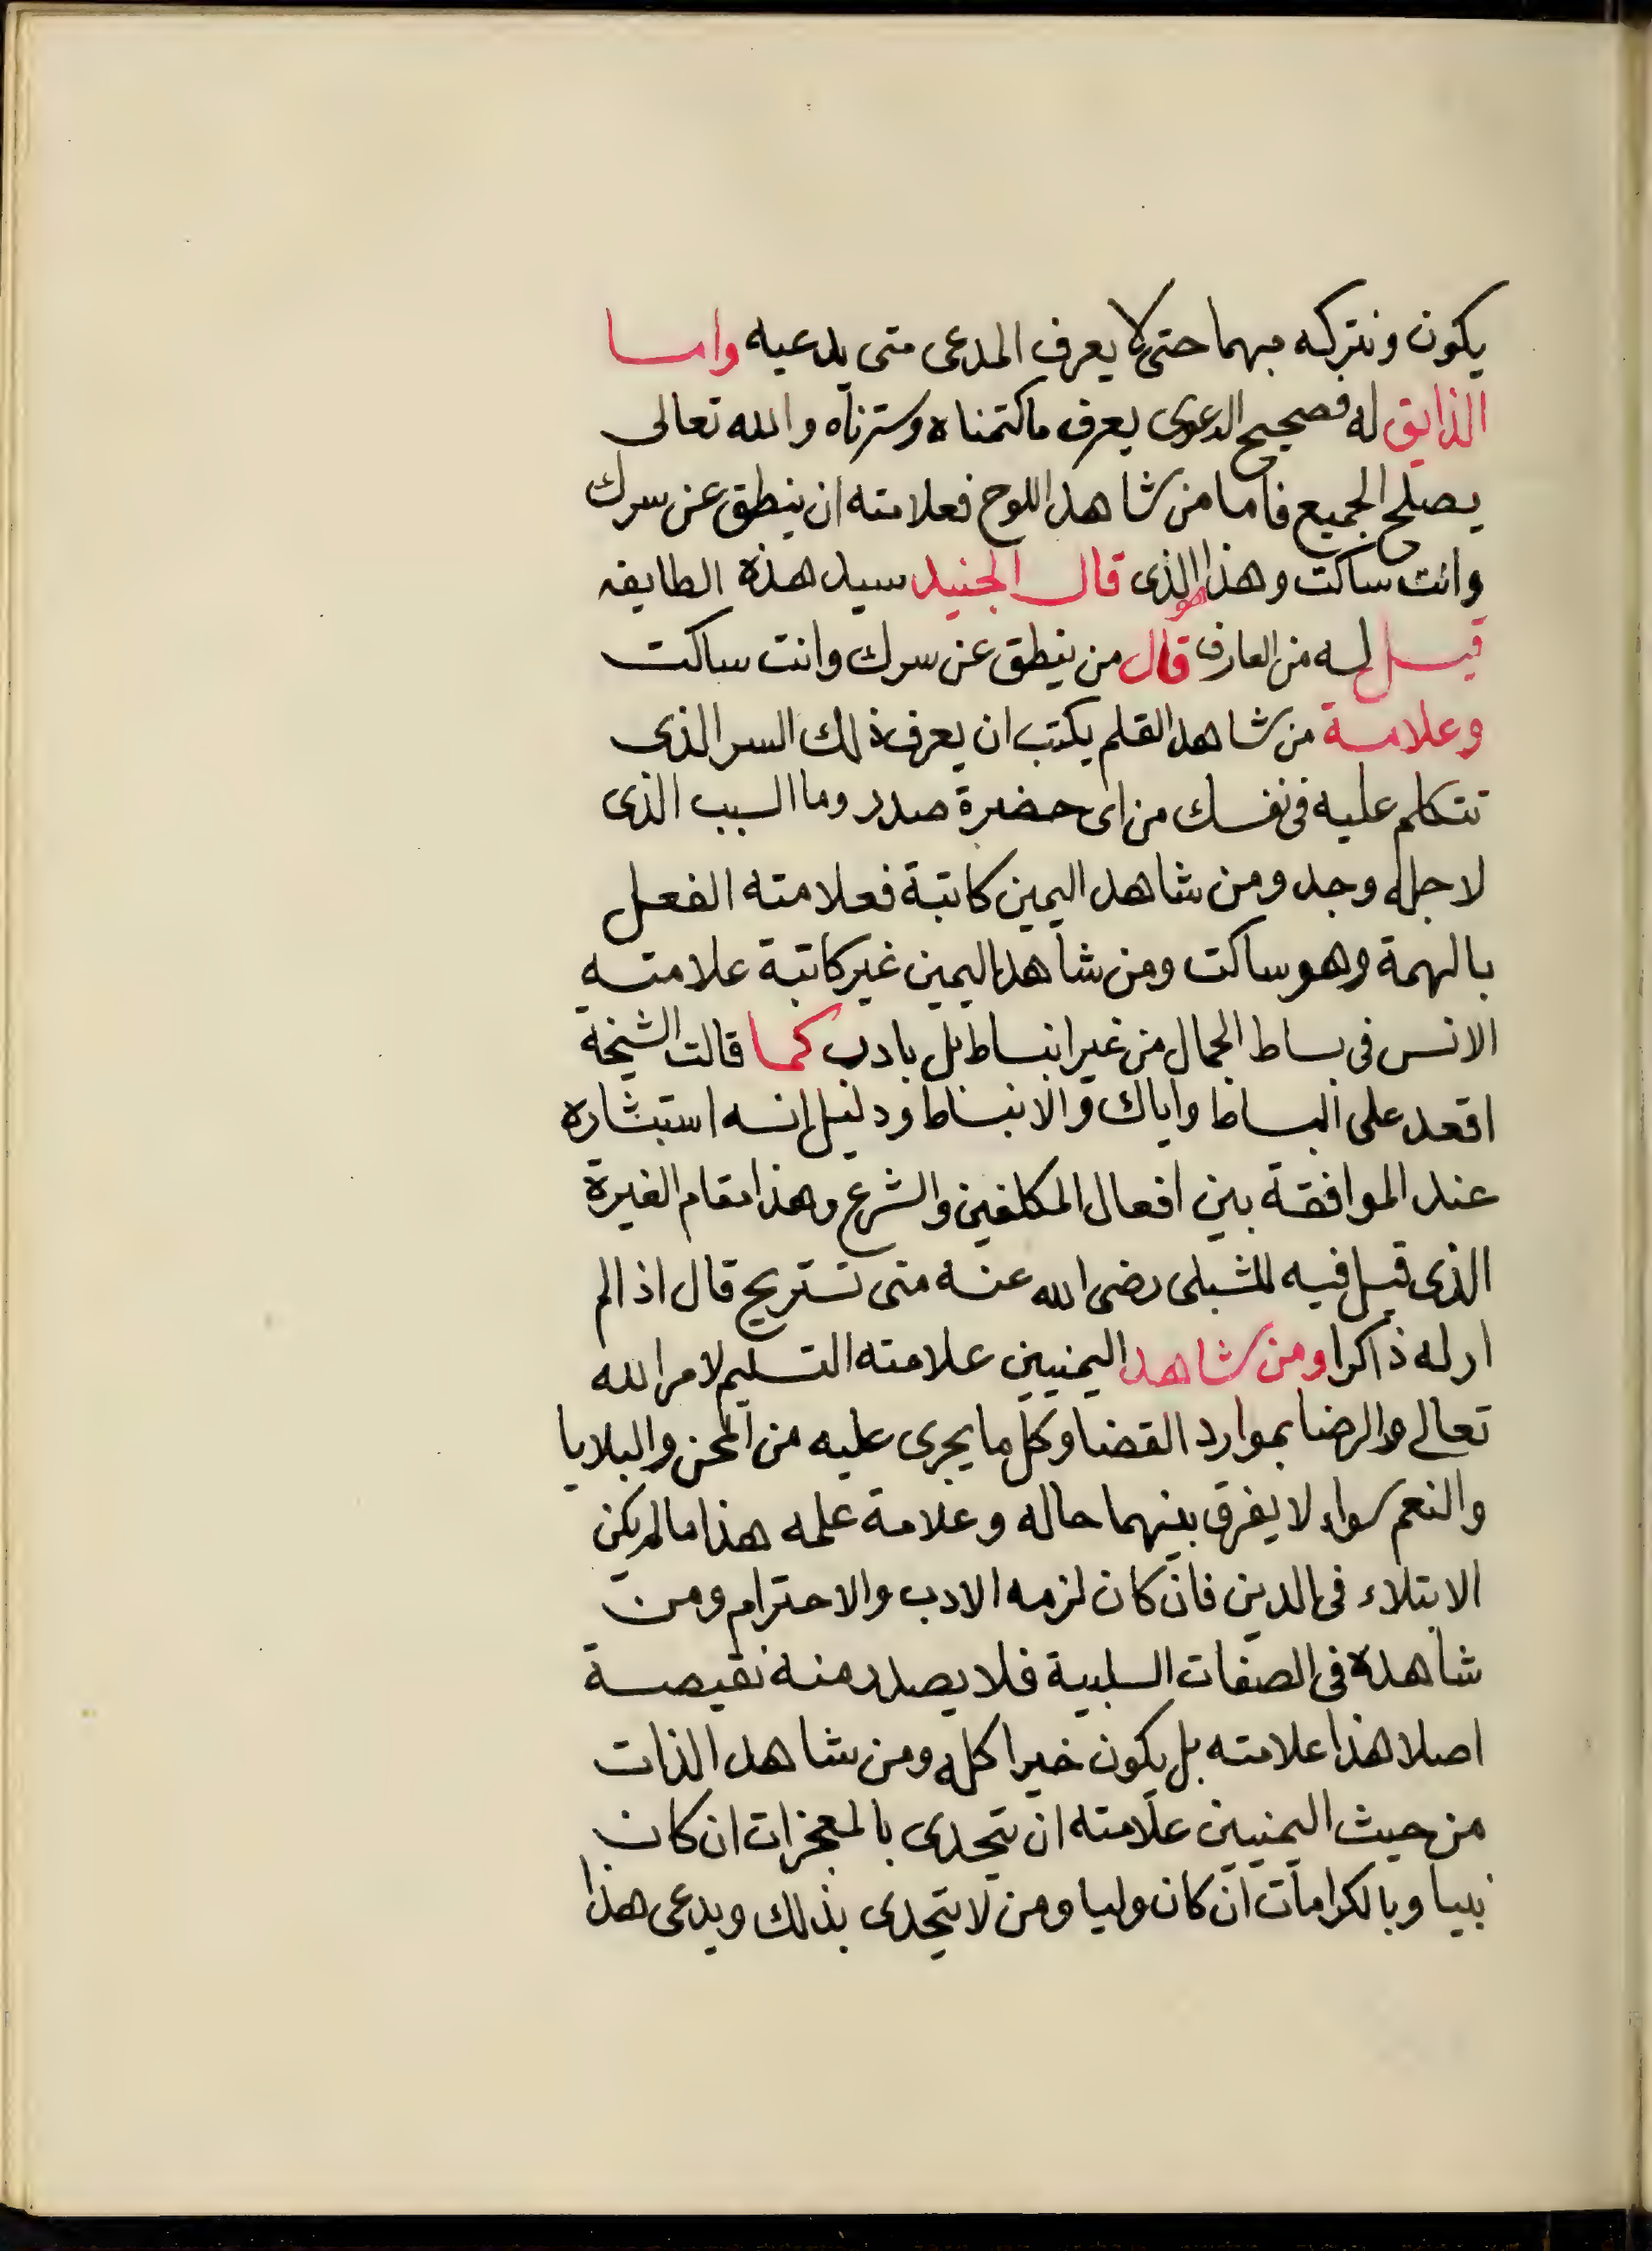 يكون ونتركه مبهما حتى لا يعرف المدعى متى يدعيه واما
الذايق له فصحيح الدعوى يعرف ما كتمناه وسترناه والله تعالى
يصلح الجميع فاما من شاهد اللوح فعلامته ان ينطق عن سرك
وانت ساكت وهذا هو الذى قال الجنيد سيد هذه الطايفه
قيل له من العارف قال من ينطق عن سرك وانت ساكت
وعلامة من شاهد القلم يكتب ان يعرف ذلك السر الذى
تتكلم عليه فى نفسك من اى حضرة صدر وما السبب الذى
لاجله وجد ومن شاهد اليمين كاتبة فعلامته الفعل
بالهمة وهو ساكت ومن شاهد اليمين غير كاتبة علامته
الانس فى بساط الجمال من غير انبساط بل بادب كما قالت الشيخة
اقعد على البساط واياك والانبساط ودليل انسه استبشاره
عند الموافقة بين افعال المكلفين والشرع وهذا مقام الغيرة
الذى قيل فيه للشبلى رضى الله عنه متى تستريح قال اذا لم
ار له ذاكرا ومن شاهد اليمنيين علامته التسليم لامر الله
تعالى والرضا بموارد القضا وكل ما يجرى عليه من المحن والبلايا
والنعم سواء لا يفرق بينهما حاله وعلامة علمه هذا ما لم يكن
الابتلاء فى الدين فان كان لزمه الادب والاحترام ومن
شاهده فى الصفات السلبية فلا يصدر منه نقيصة
اصلا هذا علامته بل يكون خيرا كله ومن شاهد الذات
من حيث اليمنيين علامته ان يتحدى بالمعجزات ان كان
نبيا وبالكرامات ان كان وليا ومن لا يتحدى بذلك ويدعى هذا